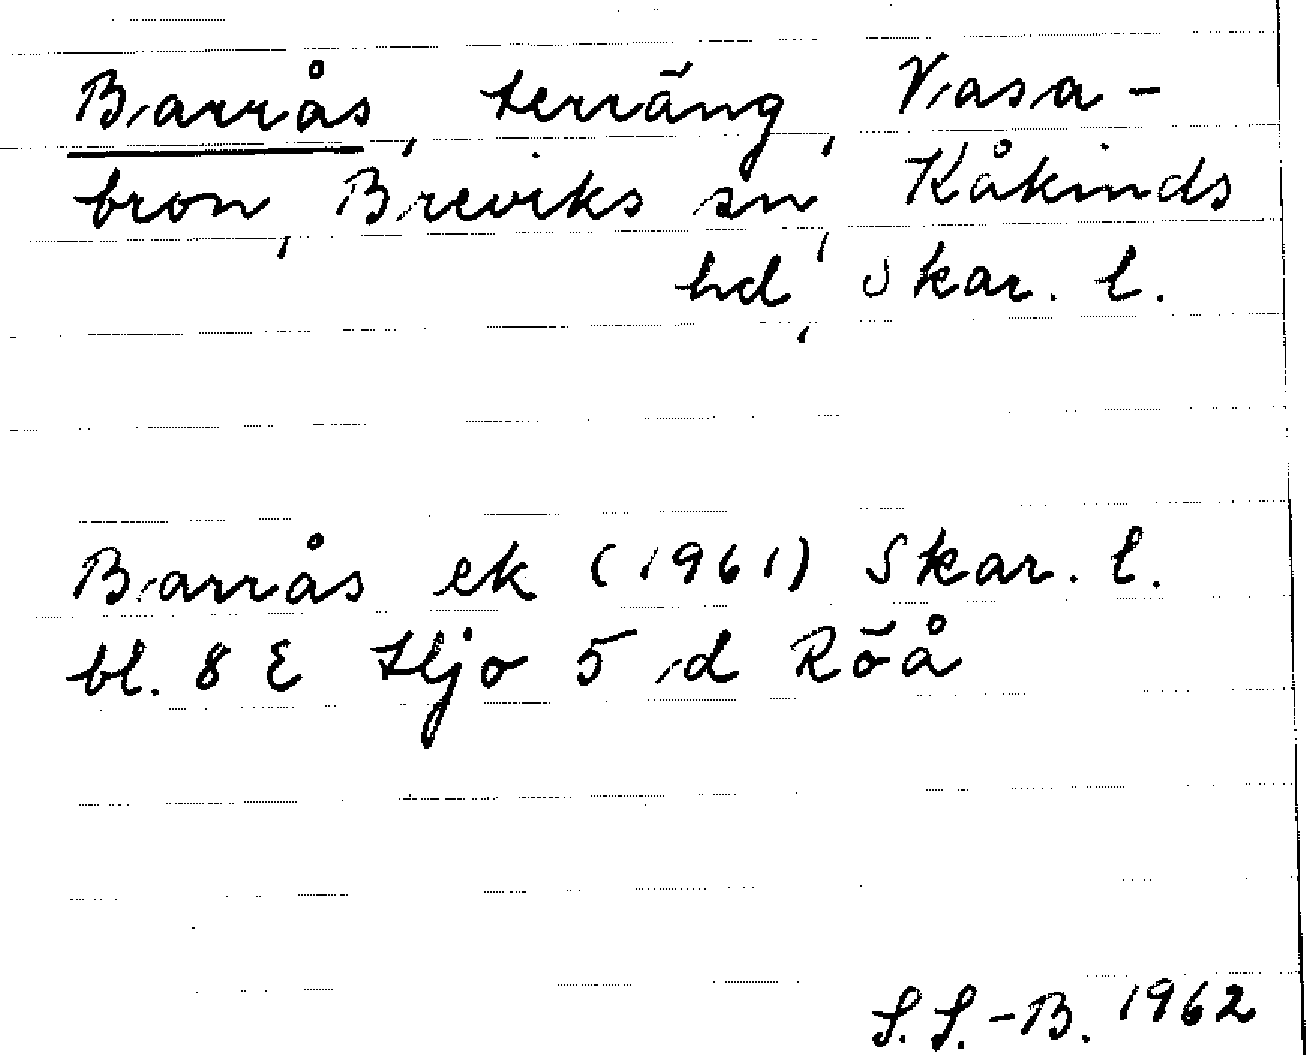 Barrås, terräng, Vasa-
bron, Breviks sn, Kåkinds
hd, Skar. l.
Barrås ek (1961) Skar. l.
bl. 8 E Hjo 5 d Röå
S. S.-B. 1962